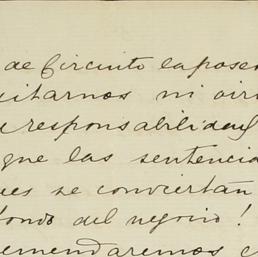 de Circuito la poser
uitarnos ni oir
responsabilidad
que las sentencia
ues se conviertan
fondo del negocio!
emendaremos c